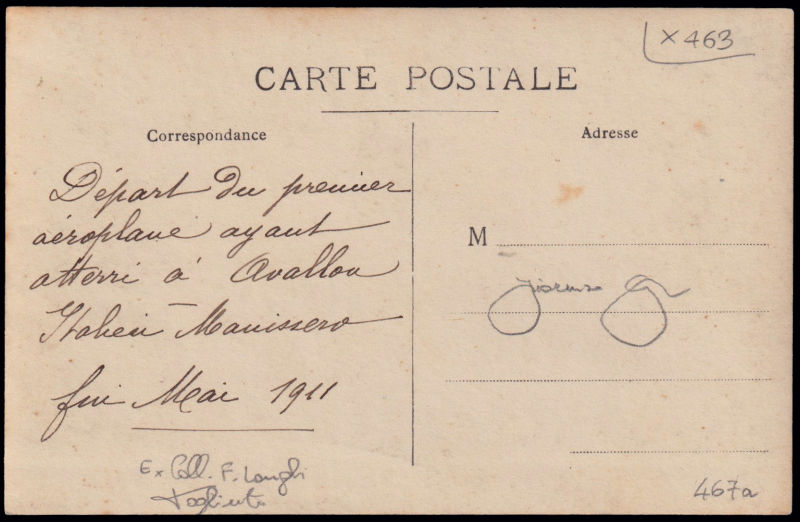 x 463
CARTE POSTALE
Correspondance
Adresse
Départ du premier
aéroplane ayant
atterri à Avallon
Italien - Manissero
fin Mai 1911
M
Ex Coll. F. Longhi
467a